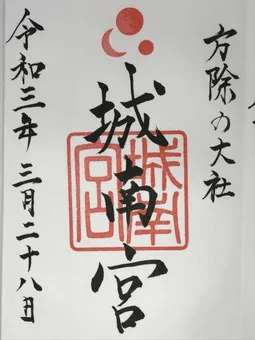 方除の大社
城南宮
城南宮印
令和三年三月二十八日